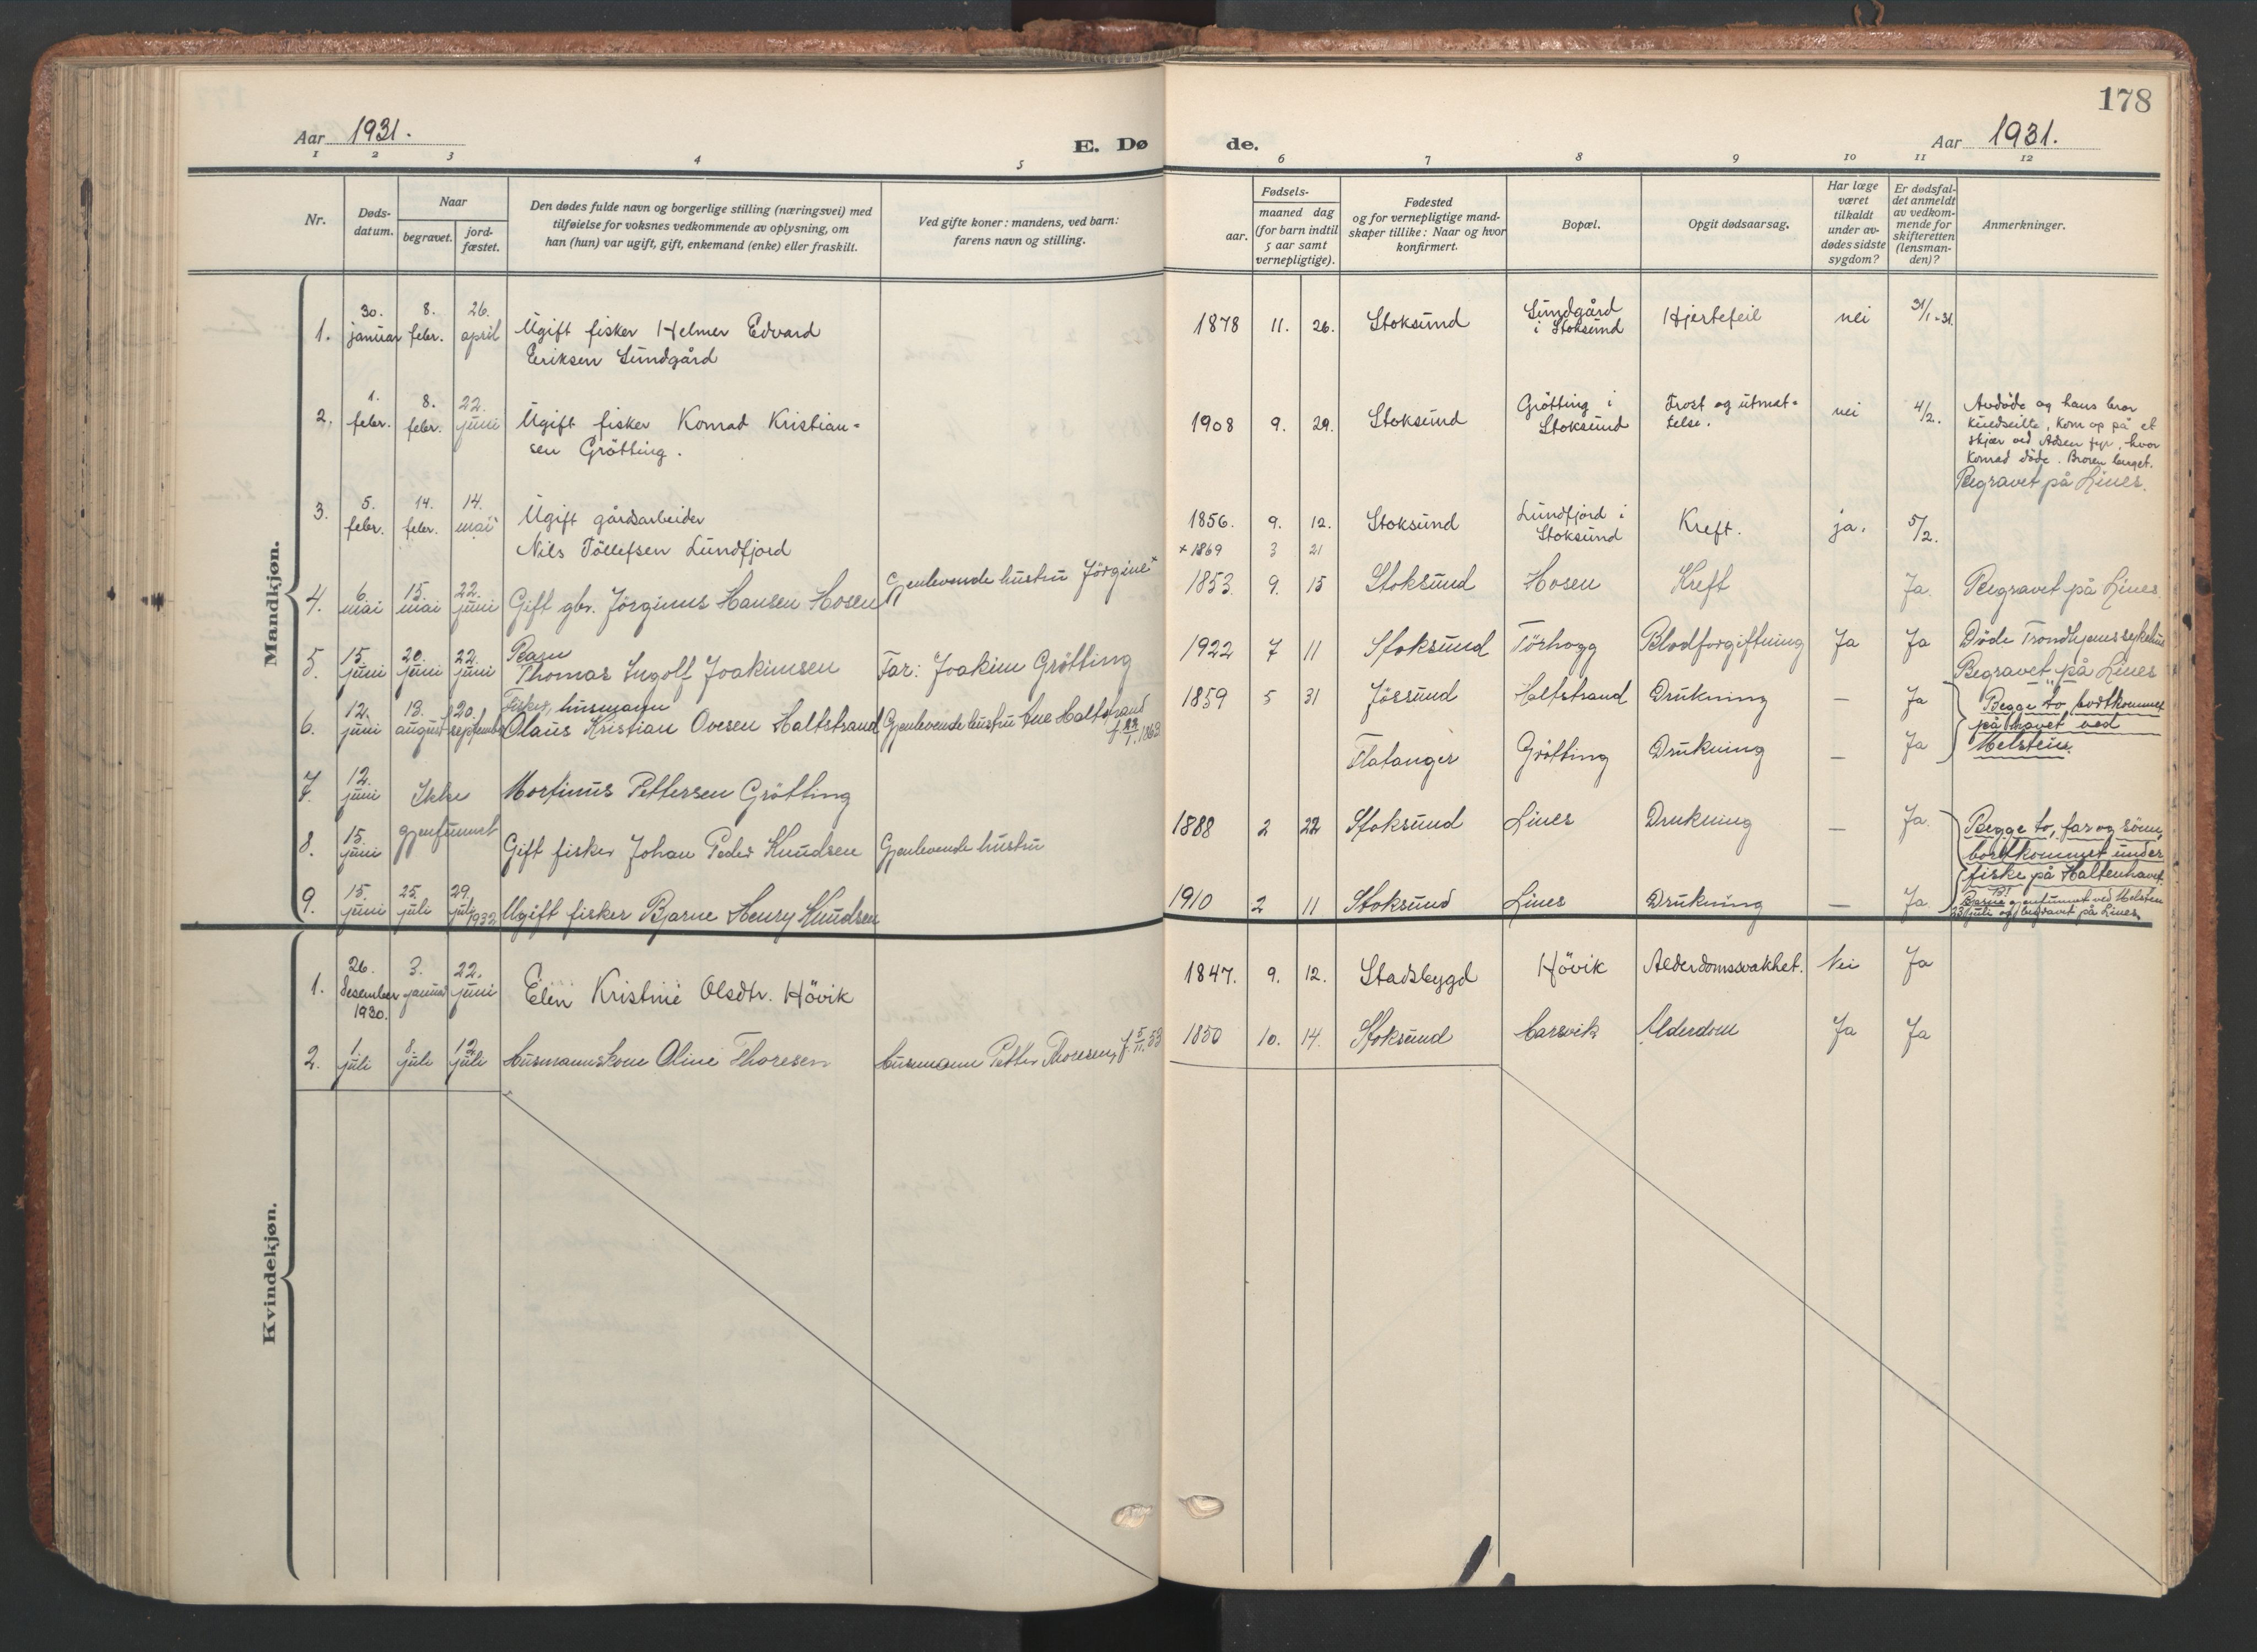 178
Aar 1931.
E. Dø
de.
Aar 1931.
1 2 3 4 5 6 7 8 9 10 11 12
Nr.
Døds-
datum.
Naar
begravet.
jord-
fæstet.
Den dødes fulde navn og borgerlige stilling (næringsvei) med
tilføielse for voksnes vedkommende av oplysning, om
han (hun) var ugift, gift, enkemand (enke) eller fraskilt.
Ved gifte koner: mandens, ved barn:
farens navn og stilling.
Fødsels-
aar.
maaned dag
(for barn indtil
5 aar samt
vernepligtige).
Fødested
og for vernepligtige mand-
skaper tillike: Naar og hvor
konfirmert.
Bopæl.
Opgit dødsaarsag.
Har læge
været
tilkaldt
under av-
dødes sidste
sygdom?
Er dødsfal-
det anmeldt
av vedkom-
mende for
skifteretten
(lensman-
den)?
Anmerkninger.
Mandkjøn.
1. 30. januar 8. febr. 26. april Ugift fisker Helmer Edvard
Eriksen Sundgård
1878 11. 26. Stoksund Sundgård i Stoksund Hjertefeil nei 31/1-31.
2. 1. febr. 8. febr. 22. juni Ugift fisker Konrad Kristian-
sen Grötting.
1908 9. 29. Stoksund Grötting i Stoksund Frost og utmat-
telse. nei 4/2.
Avdöde og hans bror
kuldseilte, kom op på et
skjær ved Adsen fyr, hvor
Konrad döde. Broren berget.
Begravet på Lines.
3. 5. febr. 14. febr. 14. mai Ugift gårdsarbeider
Nils Töllefsen Lundfjord
1856. 9. 12. Stoksund Lundfjord i Stoksund Kreft. ja. 5/2.
× 1869 3 21
4. 6. mai 15. mai 22. juni Gift gbr. Jörginus Hansen Hosen Gjenlevende hustru Jörgine ×
1853. 9. 15 Stoksund Hosen Kreft Ja. Begravet på Lines.
5. 15. juni 20. juni 22. juni Barn
Thomas Ingolf Joakimsen Far: Joakim Grötting
1922 7 11 Stoksund Törhogg Blodforgiftning Ja Ja Döde Trondhjems sykehus
Begravet på Lines
6. 12. juni 13. august 20. september Fisker, husmann
Olaus Kristian Ovesen Haltstrand Gjenlevende hustru Ane Haltstrand
f. 22/1. 1863
1859 5 31 Jössund Haltstrand Drukning Ja
Begge to bortkommet
på havet ved
Melstein.
7. 12. juni Ikke Martinus Pettersen Grötting
Flatanger Grötting Drukning — Ja
gjenfunnet
8. 15. juni Gift fisker Johan Peder Knudsen Gjenlevende hustru
1888 2 22 Stoksund Lines Drukning — Ja.
Begge to, far og sönn,
bortkommet under
fiske på Haltenhavet.
9. 15. juni 25. juli 29. juli 1932 Ugift fisker Bjarne Henry Knudsen
1910 2 11 Stoksund Lines Drukning — Ja.
Bjarne gjenfunnet ved Melsten
23/juli og begravet på Lines.
Kvindekjøn.
1. 26. desember 1930. 3. januar 22. juni Elen Kristine Olsdtr. Hövik
1847. 9. 12. Stadsbygd Hövik Alderdomssvakhet. Nei Ja
2. 1. juli 8. juli 12. juli Husmannskone Oline Thoresen Husmann Petter Thoresen, f. 5/11.53
1850 10. 14. Stoksund Harsvik Alderdom Ja Ja